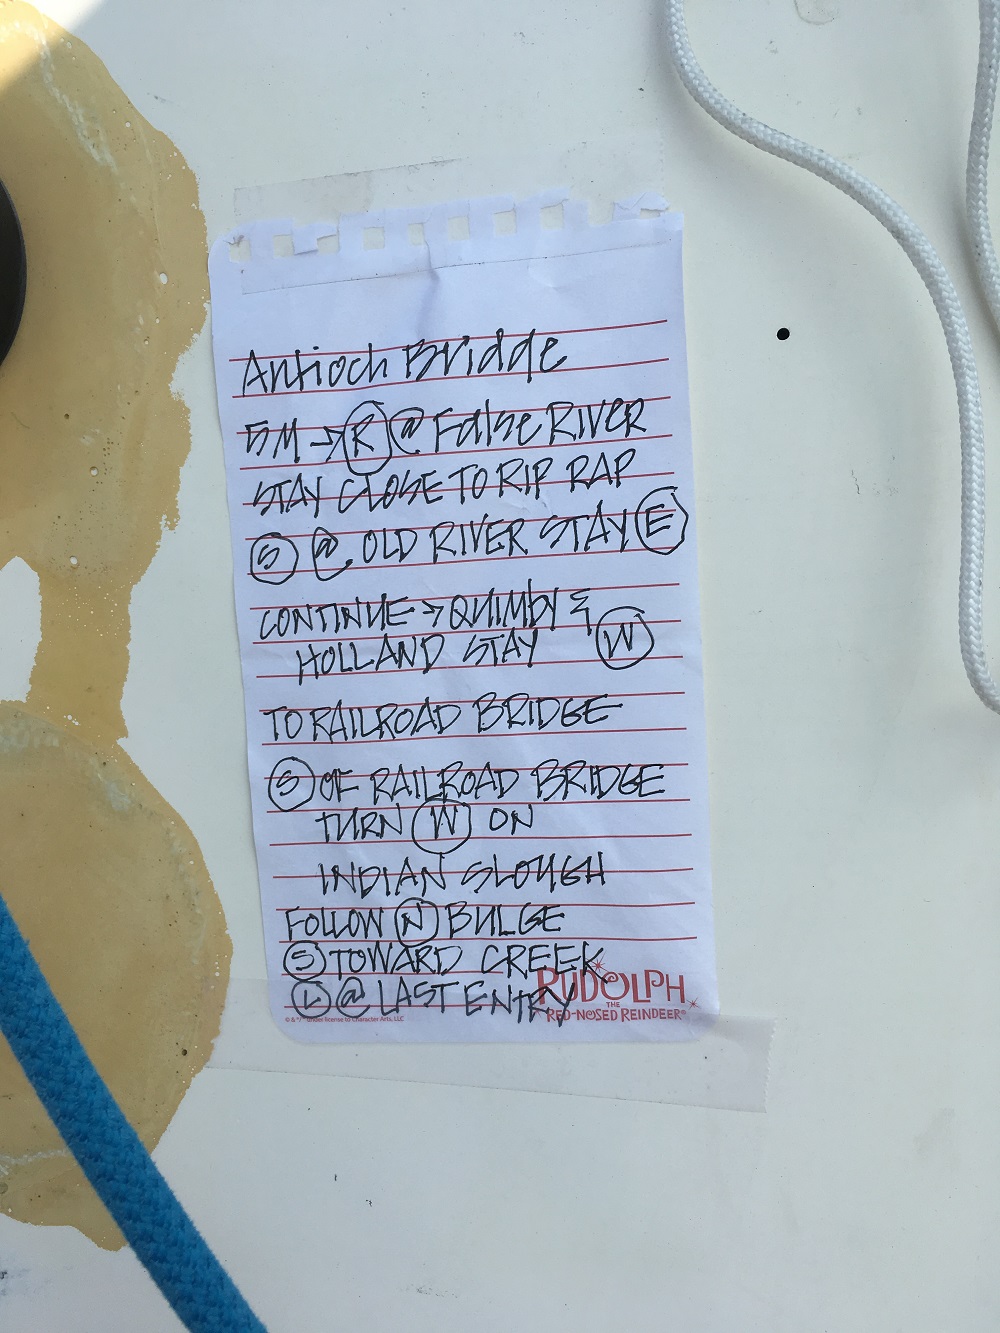 Antioch Bridge
5M → R @ False River
STAY CLOSE TO RIP RAP
S @ OLD RIVER STAY E
CONTINUE → QUIMBY &
HOLLAND STAY W
TO RAILROAD BRIDGE
S OF RAILROAD BRIDGE
TURN W ON
INDIAN SLOUGH
FOLLOW N BULGE
S TOWARD CREEK
L @ LAST ENTRY
RUDOLPH
THE
RED-NOSED REINDEER®
under license to Character Arts, LLC